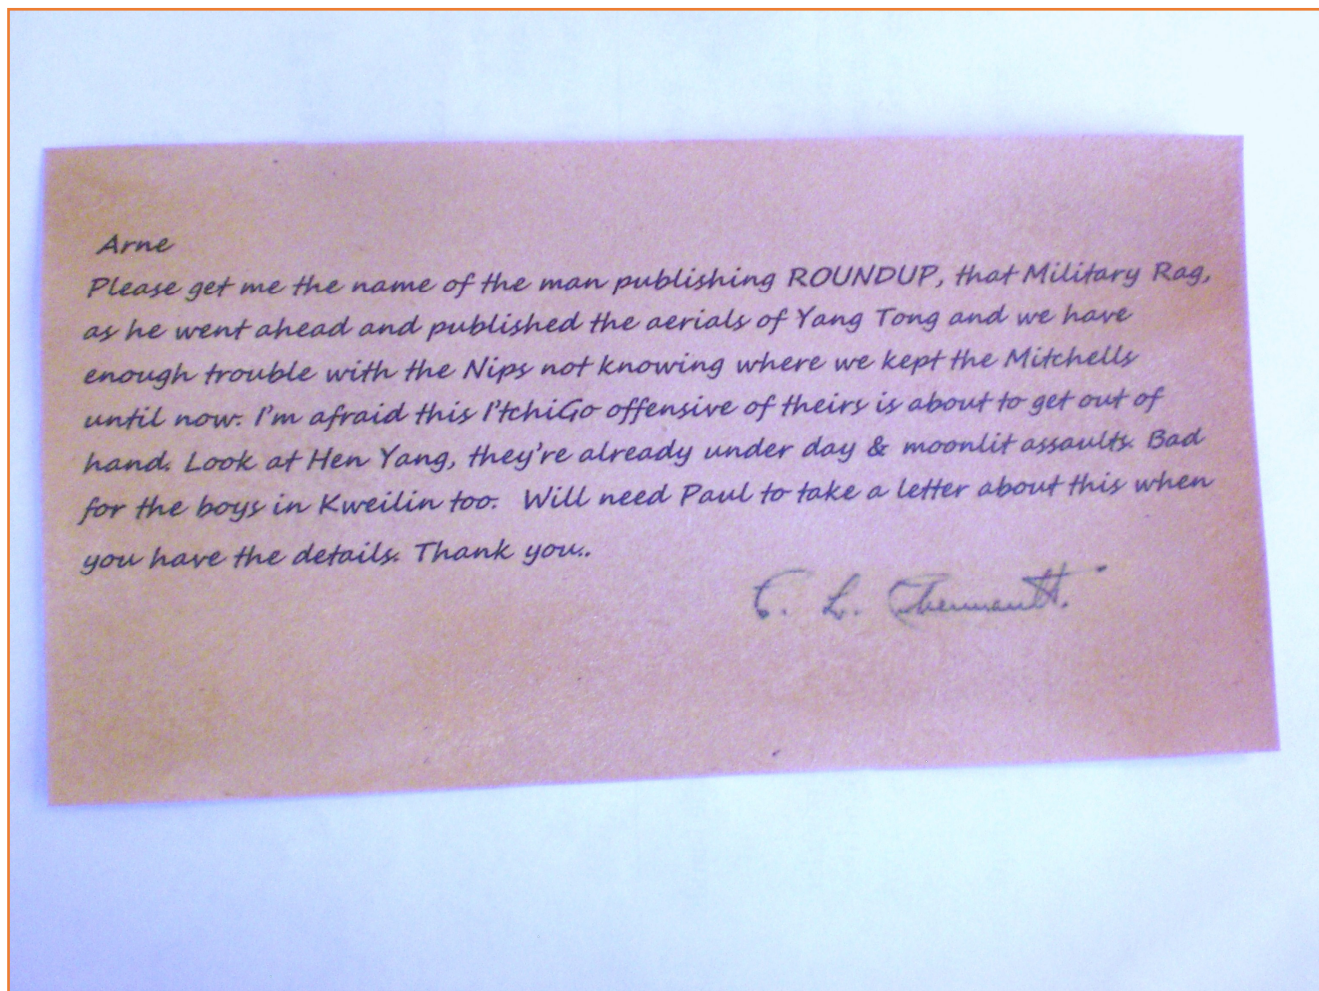 Arne
Please get me the name of the man publishing ROUNDUP, that Military Rag,
as he went ahead and published the aerials of Yang Tong and we have
enough trouble with the Nips not knowing where we kept the Mitchells
until now. I'm afraid this I'tchiGo offensive of theirs is about to get out of
hand. Look at Hen Yang, they're already under day & moonlit assaults. Bad
for the boys in Kweilin too. Will need Paul to take a letter about this when
you have the details. Thank you..
C. L. Chennault.